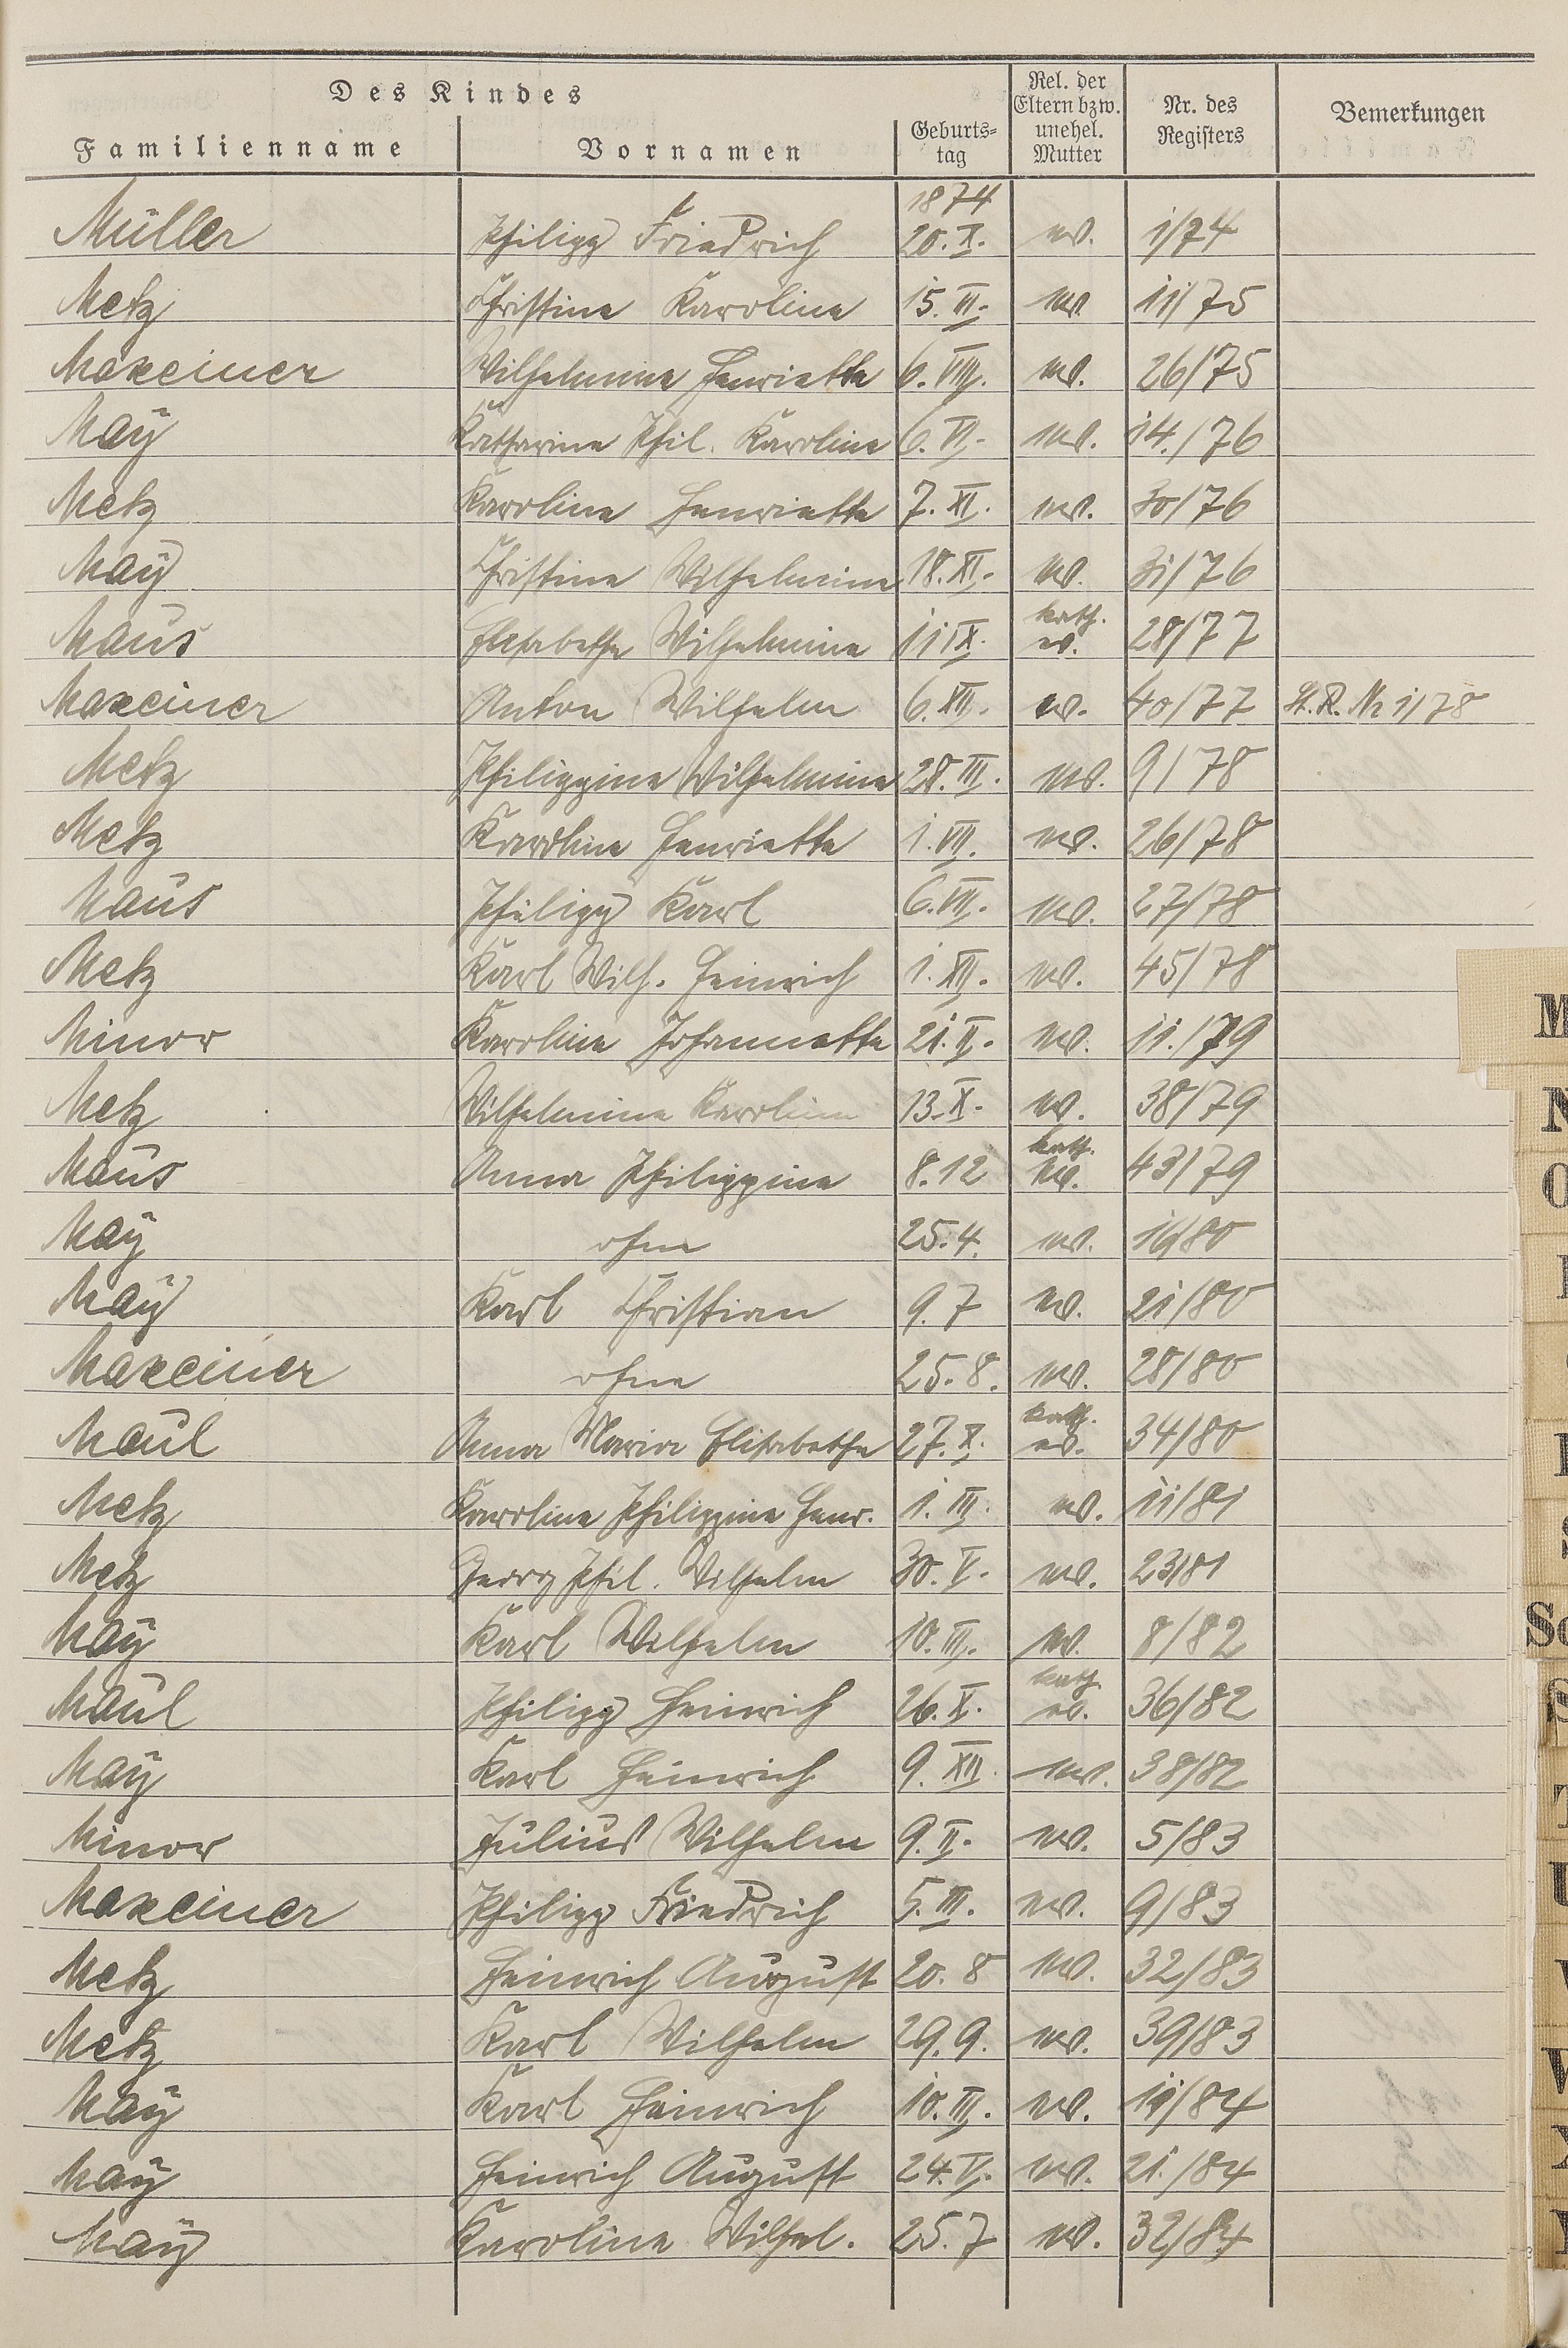 Des Kindes
Familienname Vornamen Geburts- tag Rel. der Eltern bzw. unehel. Mutter Nr. des Registers Bemerkungen
1874
Müller Philipp Friedrich 20. X. ev. 1/74
Metz Christine Karoline 15. III. ev. 11/75
Maxeiner Wilhelmine Henriette 6. VIII. ev. 26/75
May Katharine Phil. Karoline 6. VI. ev. 14./76
Metz Karoline Henriette 7. XI. ev. 30/76
May Christine Wilhelmine 18. XI. ev. 31/76
Maus Elisabethe Wilhelmine 11 IX. kath. ev. 28/77
Maxeiner Anton Wilhelm 6. XII. ev. 40/77 St. R. Nr 1/78
Metz Philippine Wilhelmine 28. III. ev. 9/78
Metz Karoline Henriette 1. VII. ev. 26/78
Maus Philipp Karl 6. VII. ev. 27/78
Metz Karl Wilh. Heinrich 1. XII. ev. 45/78
Minor Karoline Johannette 21. II. ev. 11./79
Metz Wilhelmine Karoline 13. X. ev. 38/79
Maus Anna Philippine 8.12 kath. ev. 43/79
May ohne 25.4. ev. /80
May Karl Christian 9.7 ev. 21/80
Maxeiner ohne 25.8. ev. 28/80
Maul Anna Maria Elisabethe 27. X. kath. ev. 34/80
Metz Karoline Philippine Henr. 1. III. ev. 11/81
Metz Georg Phil. Wilhelm 30. V. ev. 23/81
May Karl Wilhelm 10. III. ev. 8/82
Maul Philipp Heinrich 26. X. kath. ev. 36/82
May Karl Heinrich 9. XII. ev. 38/82
Minor Julius Wilhelm 9. II. ev. 5/83
Maxeiner Philipp Friedrich 5. III. ev. 9/83
Metz Heinrich August 20. 8 ev. 32/83
Metz Karl Wilhelm 29. 9. ev. 39/83
May Karl Heinrich 10. III. ev. /84
May Heinrich August 24. V. ev. 21./84
May Karoline Wilhel. 25. 7 ev. 32/84
M
N
O